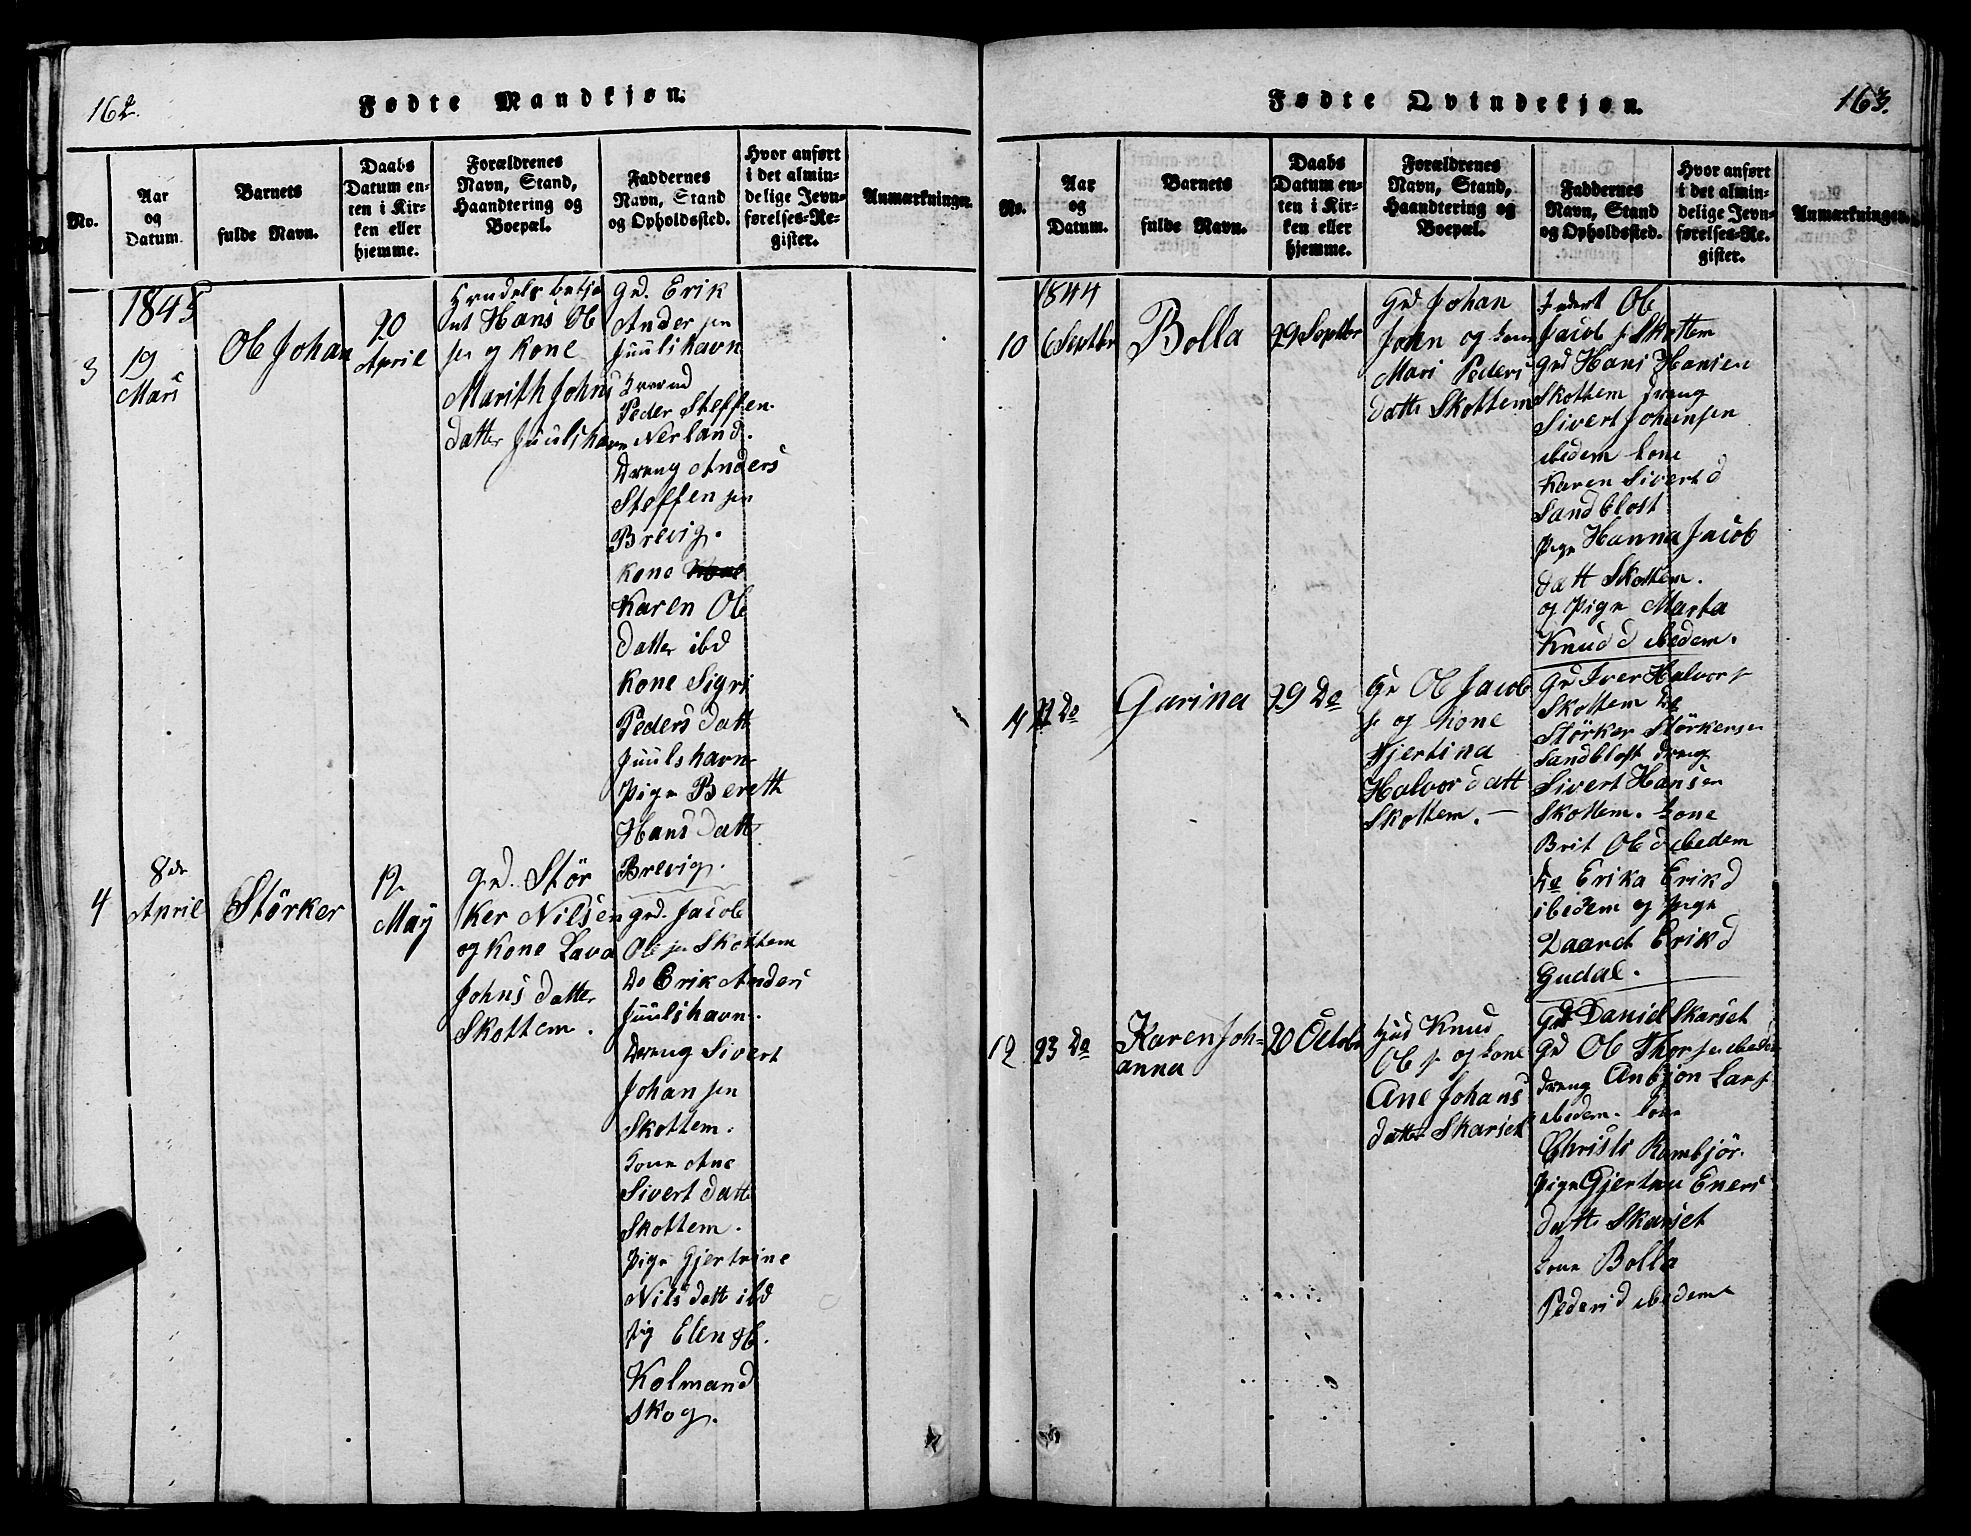 162.
Fødte Mandkjøn.
No.
Aar
og
Datum.
Barnets
fulde Navn.
Daabs
Datum en-
ten i Kir-
ken eller
hjemme.
Forældrenes
Navn, Stand,
Haandtering og
Boepæl.
Faddernes
Navn, Stand
og Opholdssted.
Hvor anført
i det almin-
delige Jevn-
førelses-Re-
gister.
Anmærkninger.
3
1845
19
Mars
Ole Johan
20
April
Hans Ole
sen og Kone
Marith Johns
datter Juulshavn
Gd. Erik
Andersen
Juulshavn
Peder Steffen
Nerland.
Dreng Anders
Steffensen
Brevig.
Kone
Karen Ole
datter ibd
Kone Sigri
Peders datt
Juulshavn
Pige Bereth
Hans datt
Brevig.
4
8de
April
Störker
12
May
Gd. Stör
ker Nilsen
og Kone Lava
Johns datter
Skottem.
Gd. Jacob
Olesen Skottem
Do Erik Anders
Juulshavn.
Dreng Sivert
Johansen
Skottem.
Kone Ane
Sivert datt
Skottem.
Pige Gjertrine
Nils datt ibd
Pig Elen H.
Kolmand
Skog.
163.
Fødte Qvindekjøn.
No.
Aar
og
Datum.
Barnets
fulde Navn.
Daabs
Datum en-
ten i Kir-
ken eller
hjemme.
Forældrenes
Navn, Stand,
Haandtering og
Boepæl.
Faddernes
Navn, Stand
og Opholdssted.
Hvor anført
i det almin-
delige Jevn-
førelses-Re-
gister.
Anmærkninger.
10
1844
6 Septbr
Bolla
29 Septbr
Gd. Johan
John og Kone
Mari Peders
datte Skottem
Ole
Jacob s Skottem
Gd Hans Hansen
Skottem Dreng
Sivert Johansen
ibedem Kone
Karen Sivert d
Sandblost
Pige Hanna Jacob
datt Skottem.
og Pige Marta
Knud d ibedem.
Do
Garina
29 Do
Gd Ole Jacob
s og Kone
Gjertina
Halvor datt
Skottem.
Gd Iver Halvors
Skottem Do
Störker Störkersen
Sandblost Dreng
Sivert Hansen
Skottem. Kone
Brit Ole d ibedem
Do Erika Erik d
ibedem og Pige
Erik d
Gudal.
12
23 Do
Karen Joh-
anna
20 Octobr
Knud
Ole s og Kone
Ane Johans
datter Skarset
Gd Daniel Skarset
Gd Ole Thorsen ibedem
Dreng Anbjøn Lars
ibedem. Kone
Christi Rombjör.
Pige Gjertru Eners
datte Skarset
Kone Bolla
Peders d ibedem